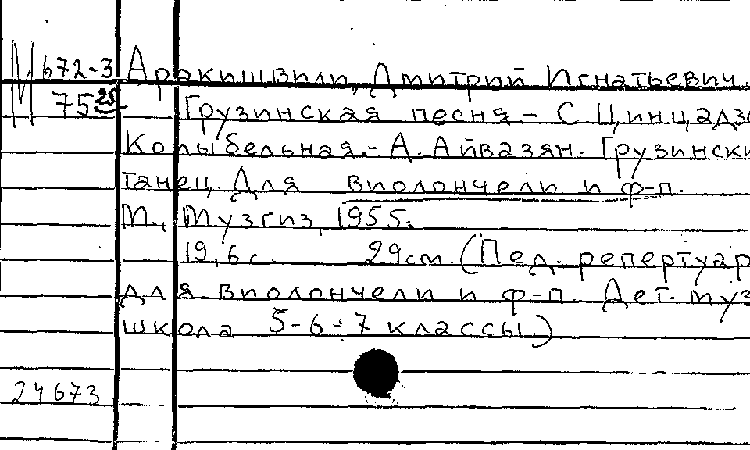 М 672-3 Аракишвили, Дмитрий Игнатьевич.
75 25 Грузинская песня. - С Цинцадзе
Колыбельная. - А. Айвазян. Грузински
танец Для виолончели и ф-п.
М., Музгиз, 1955.
19, 6 с. 29 см (Пед. репертуар
для виолончели и ф-п. Дет. муз
школа 5-6-7 классы.)
24673